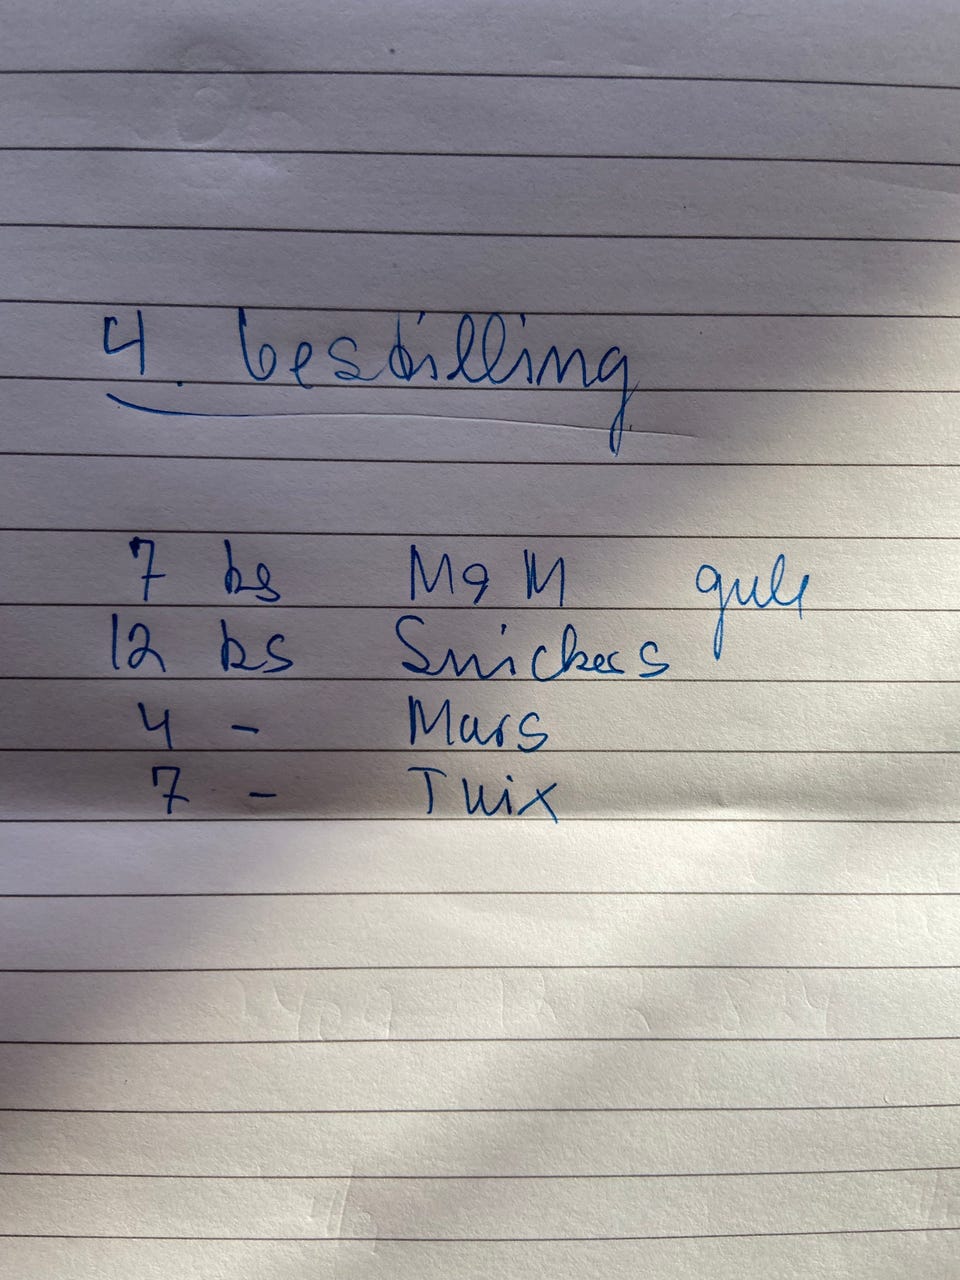 4. bestilling
7 ks M&M gule
12 ks Snickers
4 - Mars
7 - Twix